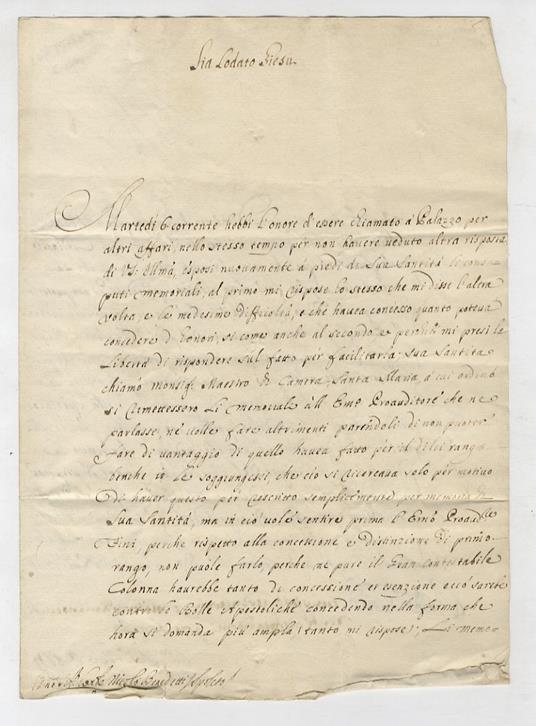 Sia Lodato Giesu.
Martedi 6 corrente hebbi l'onore d'essere chiamato á Palazzo per
altri affari, nello stesso tempo per non havere veduto altra risposta
di V.S. Illma, esposi nuovamente á piedi di Sua Santità li
puti memoriali, al primo mi rispose lo stesso che mi disse l'altra
volta, e le medesime difficoltà, e che havea concesso quanto poteva
concedere d'honori, si come anche al secondo e perché mi presi la
libertà di rispondere sul fatto per facilitarla, Sua Santità
chiamò Monsigr Maestro di Camera Santa Maria, a cui ordinò
si rimettessero li memoriale all Emo Proauditore che ne
parlasse, né volle fare altrimenti parendoli di non poter
fare di vantaggio di quello havea fatto per il di lei rango
benche io le soggiungessi, che ciò si ricercava solo per motivo
di haver questo per rescritto semplicemente, per memoria di
Sua Santità, ma in ciò vole sentire prima l'Emo Proaudre
Fini, perche rispetto alla concessione e distinzione di primo
rango, non puole farlo, perche ne pure il Gran Contestabile
Colonna haurebbe tanto di concessione et esenzione
contro le Bolle Apostoliche concedendo nella forma che
hora si domanda più ampla (tanto mi rispose); Li memo-
Nicolo Benedetti